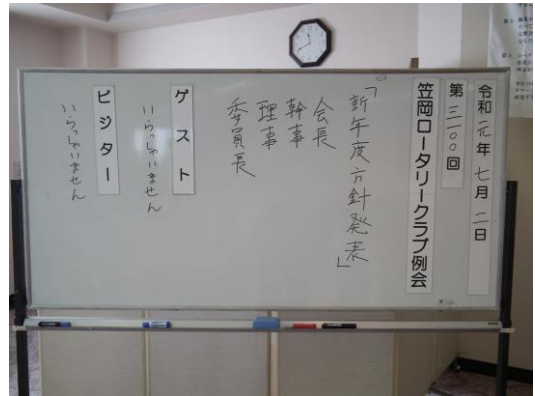 令和元年七月二日
第三一〇〇回
笠岡ロータリークラブ例会
「新年度方針発表」
会長
幹事
理事
委員長
ゲスト
いらっしゃいません
ビジター
いらっしゃいません